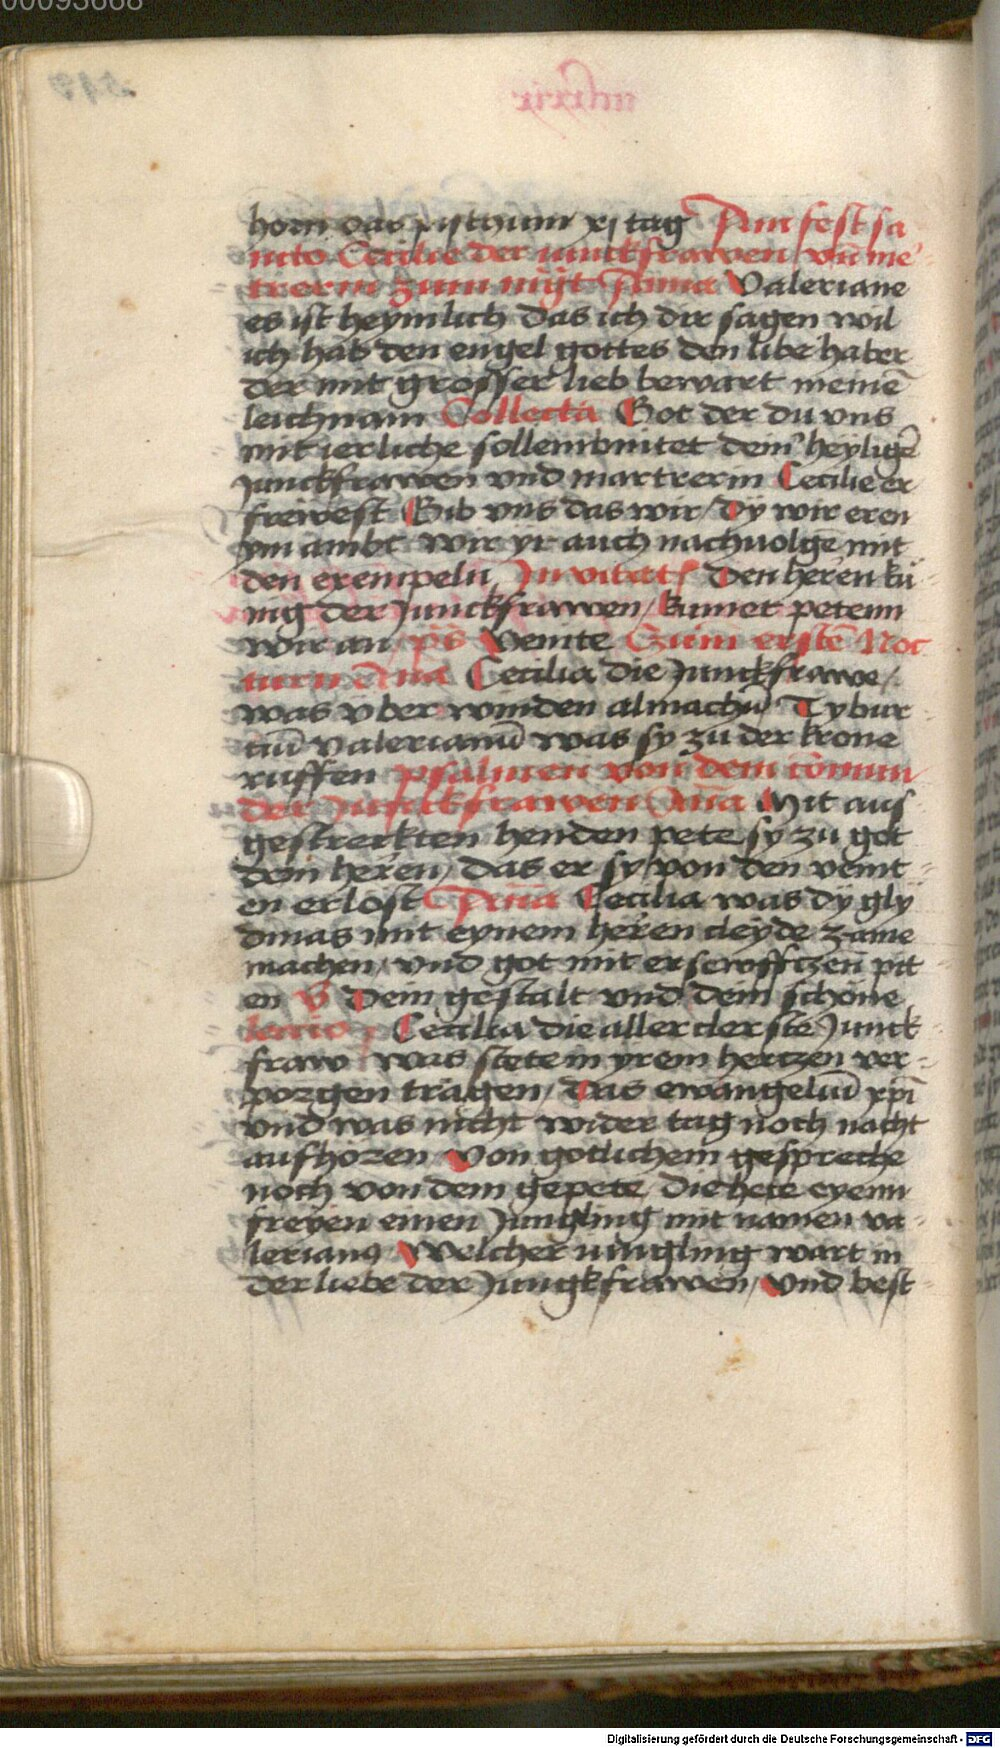 00093668
horn das pisthum xj tag Am fest sa
ncto Cecilie der iunckfrawen vn̄ me
trerin zum nygt Anna Valeriane
es ist heymlich das ich dir sagen wil
ich hab den engel gottes den libe haber
der mit grosser lieb bewart meinē
leichnam Collecta Got der du vns
mit ierliche sollembnitet deinˀ heyligē
Junckfrawen vnd martrerin Cecilie er
frewest Gib vns das wir / dy wir eren
ym ambt wir yr auch nachuolge mit
den exempeln Invitat Den heren ku
nig der Junckfrawen / kumet petenn
wir an p̄s Venite Zum erstē Noc
turn Ana Cecilia die Junckfrawe /
was vber winden almachū Tybur
ciū valerianū was sy zu der krone
ruffen psalmen von dem cōmun
der Junckfrawen Ana Mit aus
gestrerkten henden pete sy zu got
dem heren / das er sy von den veint
en erlost Ana Cecilia was dy gly
dmas mit eynem heren cleyde zame
machen / vnd got mit ersewfftzen pit
en V Dein gestalt vnd dein schöne
lectio Cecilia die aller clerste Junck
fraw was stete in yrem hertzen ver
porgen tragen / Das ewangeliū xp̄i
vnd was nicht wider tag noch nacht
aufhoren von gotlichem gespreche
noch von dem gepete die hete eyenn
freyen einen Jungling mit namen va
lerianus Welcher iungling wart in
der liebe der Jungkfrawen / vnd best
Digitalisierung gefördert durch die Deutsche Forschungsgemeinschaft - DFG